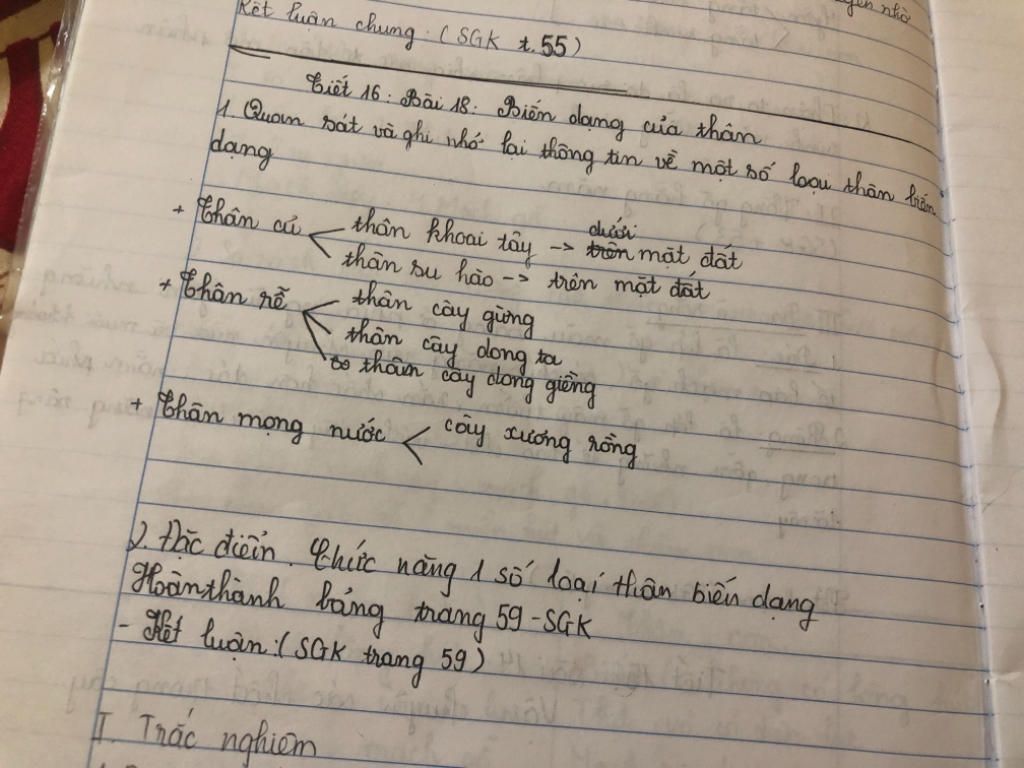 Kết luận chung: (SGK t.55)
Tiết 16: Bài 18: Biến dạng của thân
1. Quan sát và ghi nhớ lại thông tin về một số loại thân biến
dạng
+ Thân củ thân khoai tây -> trên dưới mặt đất
thân su hào -> trên mặt đất
+ Thân rễ thân cây gừng
thân cây dong ta
thân cây dong giềng
+ Thân mọng nước cây xương rồng
2. Đặc điểm. Chức năng 1 số loại thân biến dạng
Hoàn thành bảng trang 59-SGK
- Kết luận: (SGK trang 59)
I. Trắc nghiêm